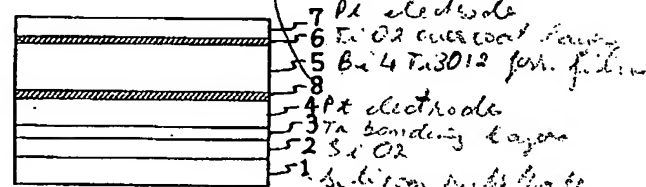 7 Pt electrode
6 TiO2 overcoat layer
5 Bi4Ti3O12 ferr. film
8
4 Pt electrode
3 Ta bonding layer
2 SiO2
1 silicon substrate